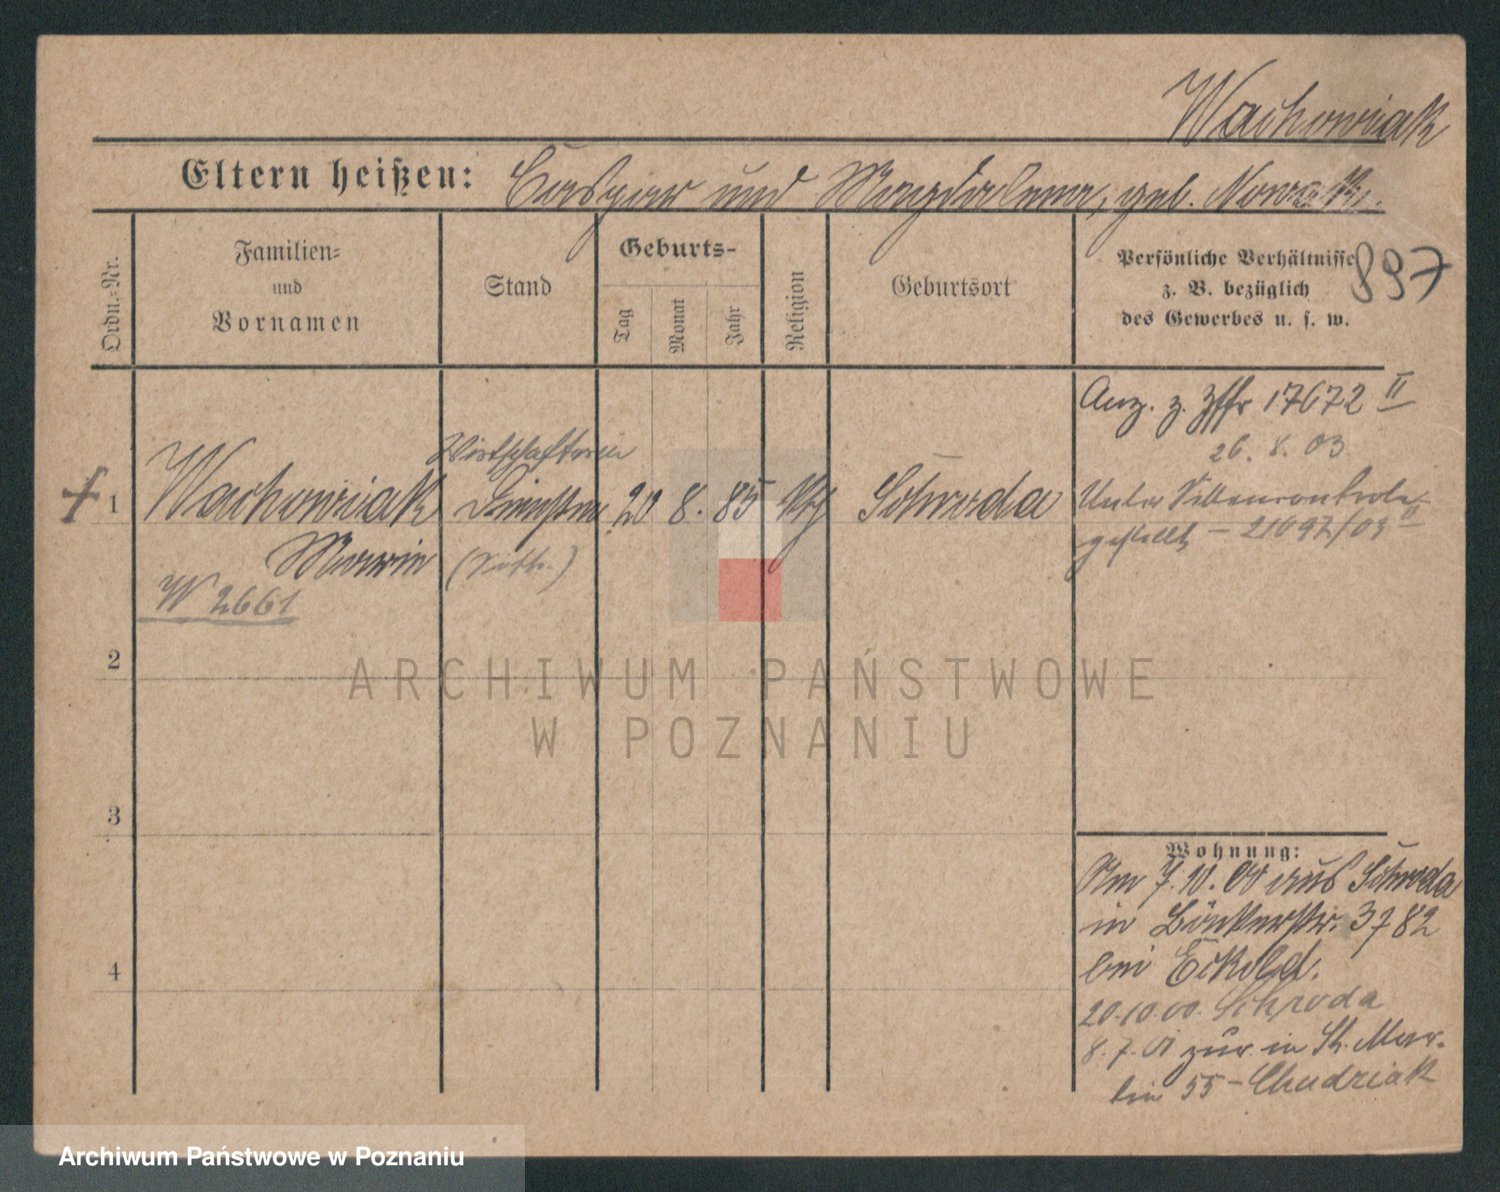 Wachowiak
Eltern heißen: Caspar und Magdalena, geb. Nowak.
Ordn.-Nr.
Familien-
und
Vornamen
Stand
Geburts-
Tag
Monat
Jahr
Religion
Geburtsort
Persönliche Verhältnisse
z. B. bezüglich
des Gewerbes u. s. w.
897
Anz. z. 17672 II
26. 8. 03
1
Wachowiak
Marie
W 2661
Wirtschafterin
20 8. 85
Schroda
Unter Sittenkontrolle
gestellt – 21697/03 II
2
3
4
Wohnung:
Am 7.10.00 aus Schroda
in Bäckerstr. 3782
bei
20.10.00. Schroda
8.7.01 zur. in St. Mar-
tin 55 – Chudziak
ARCHIWUM PAŃSTWOWE
W POZNANIU
Archiwum Państwowe w Poznaniu